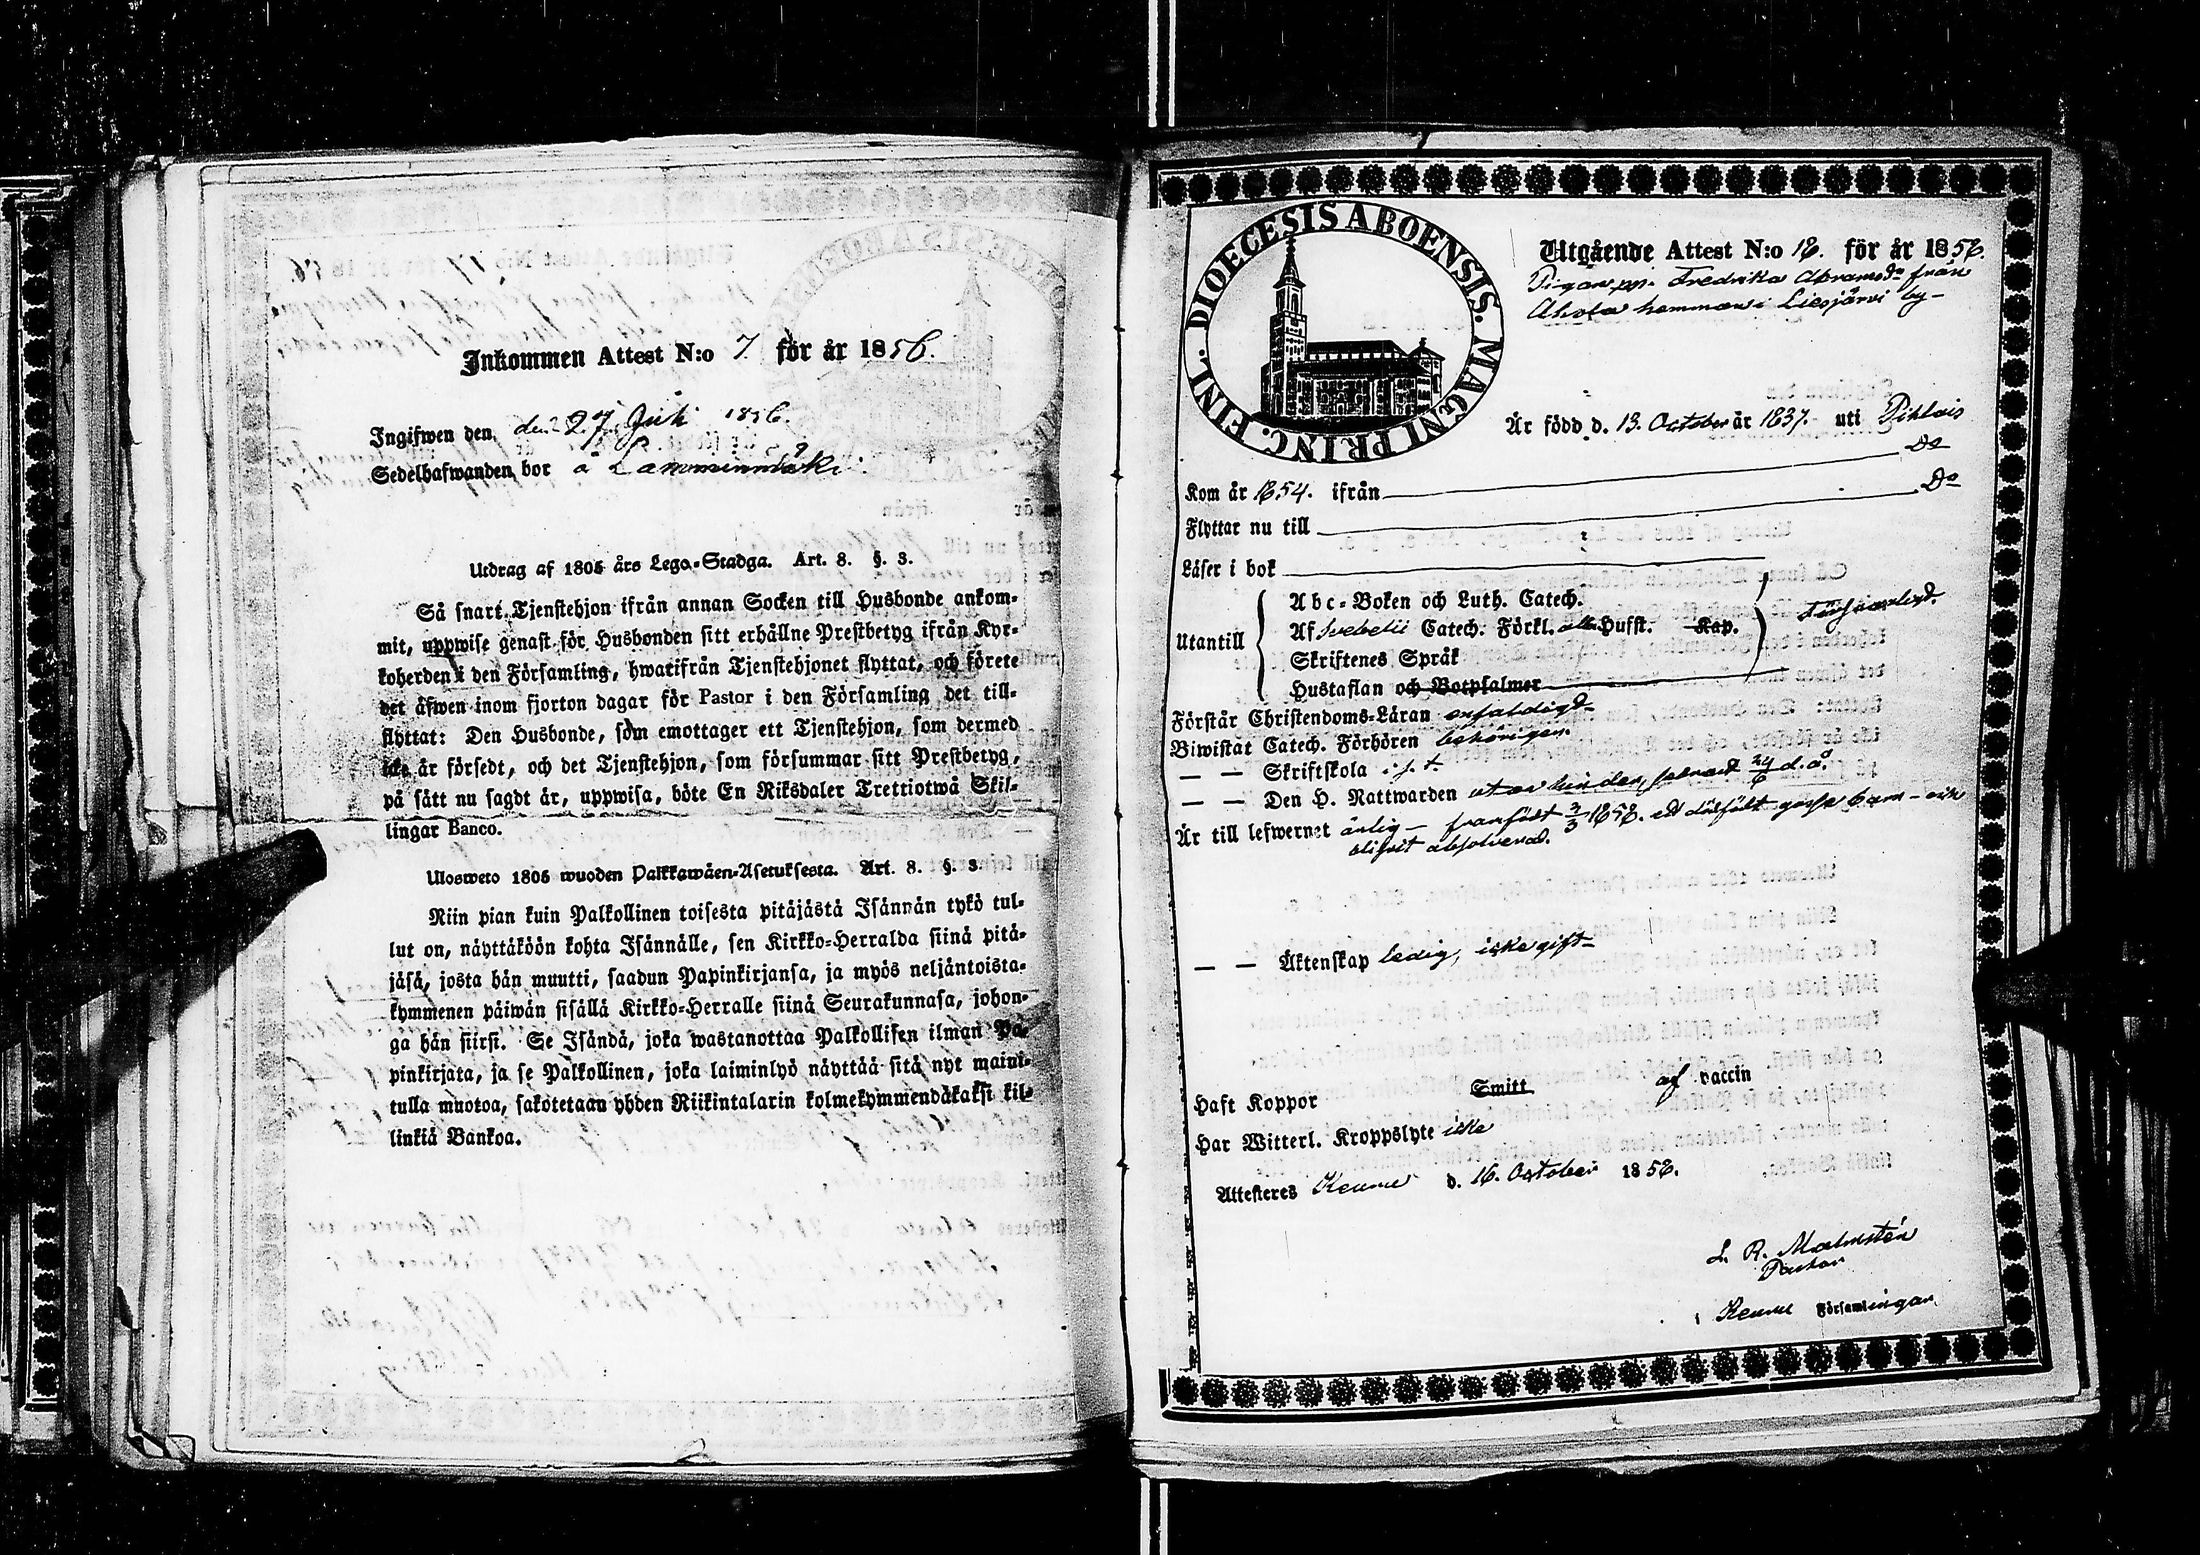 Inkommen Attest N:o 7. för år 1856.
Ingifwen den den 27 Juli 1856.
Sedelhafwanden bor å Lamminmäki.
Utdrag af 1805 års Lego-Stadga. Art. 8. §. 3.
Så snart Tjenstehjon ifrån annan Socken till Husbonde ankom-
mit, uppwise genast för Husbonden sitt erhållne Prestbetyg ifrån Kyr-
koherden i den Församling, hwarifrån Tjenstehjonet flyttat, och förete
det äfwen inom fjorton dagar för Pastor i den Församling det till-
flyttat: Den Husbonde, som emottager ett Tjenstehjon, som dermed
icke är försedt, och det Tjenstehjon, som försummar sitt Prestbetyg,
på sätt nu sagdt är, uppwisa, böte En Riksdaler Trettiotwå Skil-
lingar Banco.
Ulosweto 1805 wuoden Palkkawäen-Asetuksesta. Art. 8. §. 3.
Niin pian kuin Palkollinen toisesta pitäjästä Isännän tykö tul-
lut on, näyttäköön kohta Isännälle, sen Kirkko-Herralda siinä pitä-
jäsä, josta hän muutti, saadun Papinkirjansa, ja myös neljäntoista-
kymmenen päiwän sisällä Kirkko-Herralle siinä Seurakunnasa, johon-
ga hän siirsi. Se Isändä, joka wastanottaa Palkollisen ilman Pa-
pinkirjata, ja se Palkollinen, joka laiminlyö näyttää sitä nyt maini-
tulla muotoa, sakotetaan yhden Riikintalarin kolmekymmendäkaksi kil-
linkiä Bankoa.
DIOECESIS ABOENSIS. MAGNI PRINC. FINL.
Utgående Attest N:o 18. för år 1858.
Pigan Fredrika Abramsdr från
Ahola hemman i Liesjärvi by -
Är född d. 13. October år 1837. uti Pihlais
Kom år 1854. ifrån Do
Flyttar nu till Do
Läser i bok
Abc-Boken och Luth. Catech.
Utantill Af Svebelii Catech. Förkl. alla Hufst. Kap. försvarligt.
Skriftenes Språk
Hustaflan och Botpsalmer
Förstår Christendoms-Läran enfaldigt
Biwistat Catech. Förhören behörigen.
— — Skriftskola i. s. t.
— — Den H. Nattwarden utan hinder, senast 24/6 d. å.
Är till lefwernet ärlig - framfödt 3/3 1858. ett dödfödt gosse barn - och
blifvit absolverad.
— — Äktenskap ledig, icke gift -
Haft Koppor Smitt af vaccin
Har Witterl. Kroppslyte icke
Attesteres Keuru d. 16. October 1858.
L. R. Malmstén
Pastor
i Keuru Församlingar